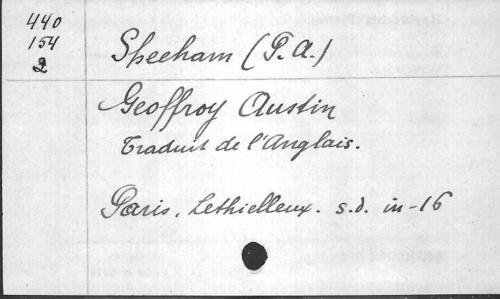 440
154
2
Sheeham (P.A.)
Geoffroy Austin
Traduit de l'Anglais.
Paris. Lethielleux. s.d. in-16